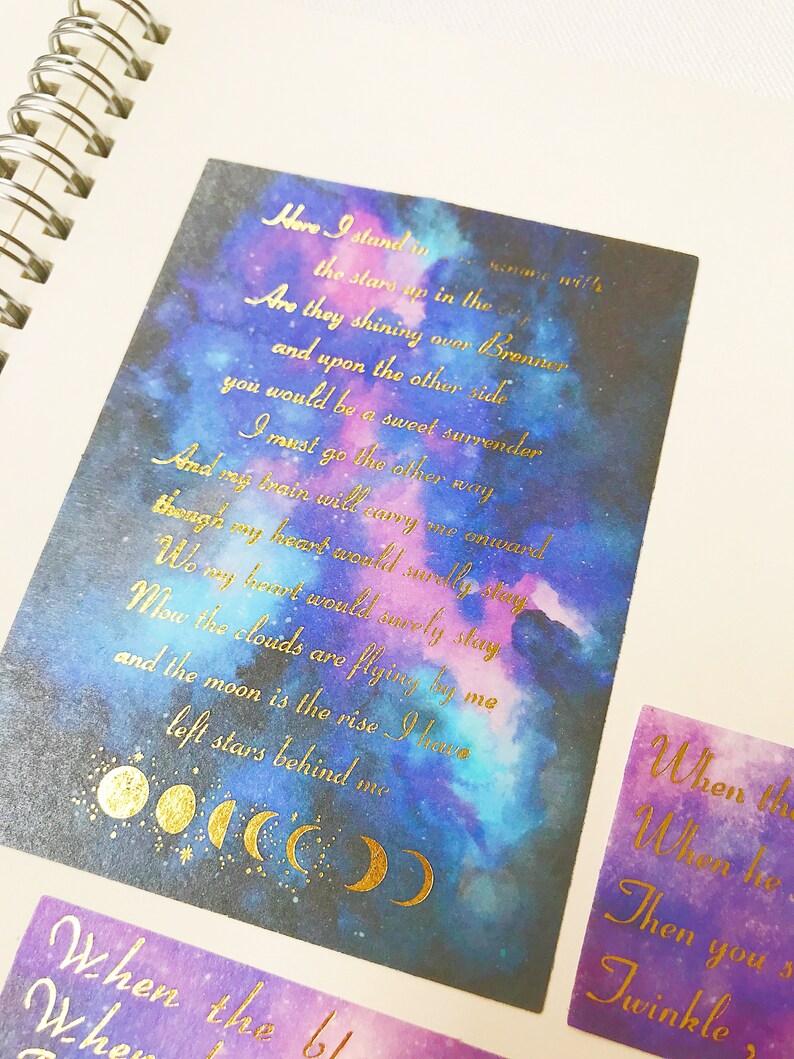 Here I stand in with
the stars up in the
Are they shining over Brenner
and upon the other side
you would be a sweet surrender
I must go the other way
And my train will carry me onward
though my heart would surdly stay
Wo my heart would surely stay
Mow the clouds are flying by me
and the moon is the rise I have
left stars behind me
When the
When he
Then you s
Twinkle,
When the bl
When